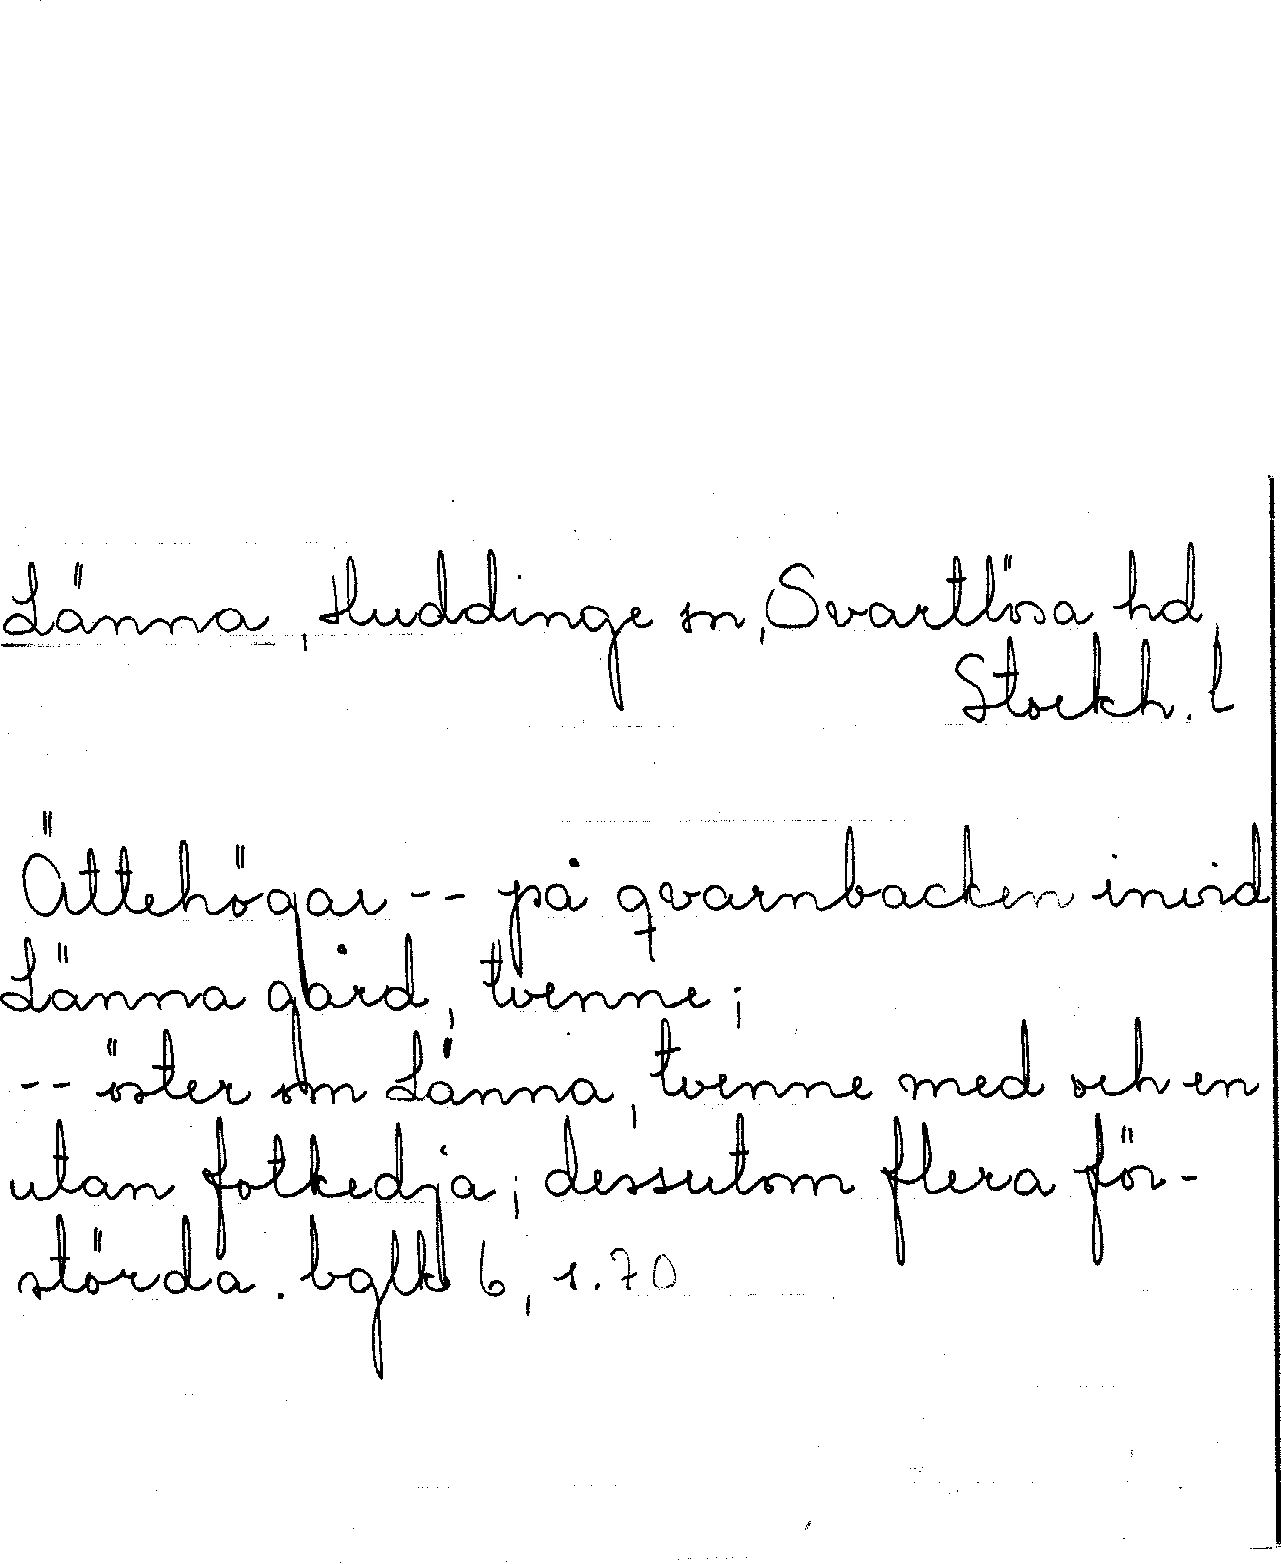 Länna, Huddinge sn, Svartlösa hd,
Stockh. l
Ättehögar -- på qvarnbacken invid
Länna gård, tvenne;
-- öster om Länna, tvenne med och en
utan fotkedja; dessutom flera för-
störda. bglk 6, s. 70